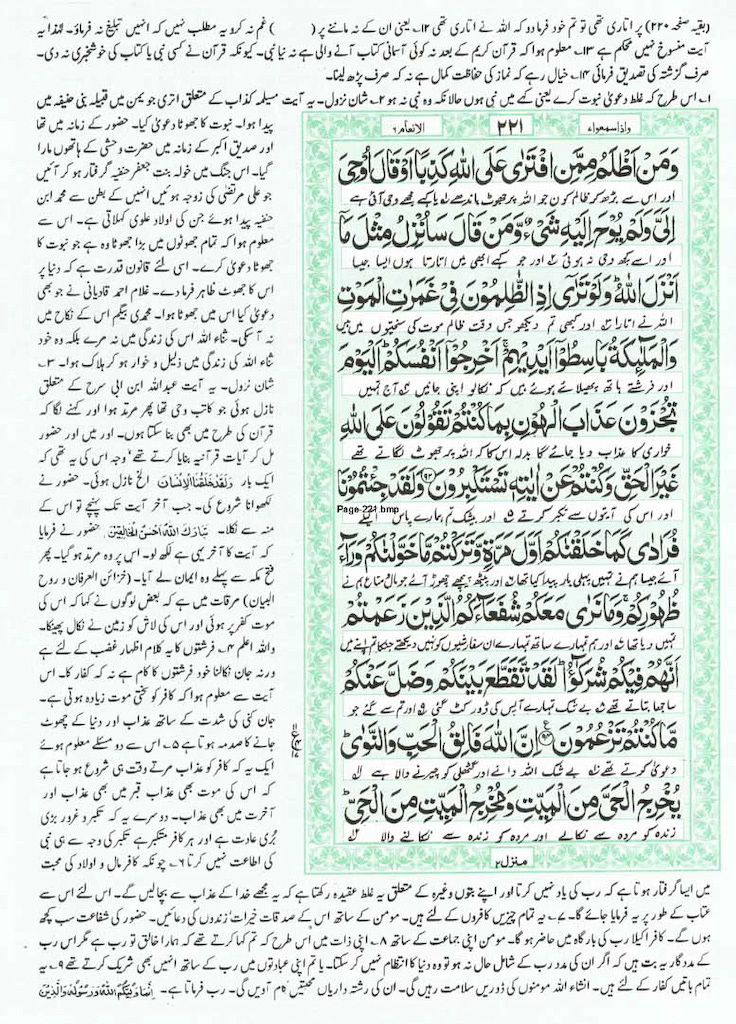 (بقیہ صفحہ ۲۲۰) پر اتاری تھی تو تم خود فرما دو کہ اللہ نے اتاری تھی ۱۲؎ یعنی ان کے نہ ماننے پر ( ) غم نہ کرو یہ مطلب نہیں کہ انہیں تبلیغ نہ فرماؤ۔ لہٰذا یہ
آیت منسوخ نہیں محکم ہے ۱۳؎ معلوم ہوا کہ قرآن کریم کے بعد نہ کوئی آسمانی کتاب آنے والی ہے نہ نیا نبی۔ کیونکہ قرآن نے کسی نبی یا کتاب کی خوشخبری نہ دی۔
صرف گزشتہ کی تصدیق فرمائی ۱۴؎ خیال رہے کہ نماز کی حفاظت کمال ہے نہ کہ صرف پڑھ لینا۔
۱؎ اس طرح کہ غلط دعویٰ نبوت کرے یعنی کہے میں نبی ہوں حالانکہ وہ نبی نہ ہو ۲؎ شان نزول۔ یہ آیت مسیلمہ کذاب کے متعلق اتری جو یمن میں قبیلہ بنی حنیفہ میں
واذا سمعوا ۷
۲۲۱
الانعام ۶
وَمَنْ اَظْلَمُ مِمَّنِ افْتَرٰى عَلَى اللّٰهِ كَذِبًا اَوْ قَالَ اُوْحِىَ
اور اس سے بڑھ کر ظالم کون جو اللہ پر جھوٹ باندھے یا کہے مجھے وحی آتی ہے
اِلَىَّ وَلَمْ يُوْحَ اِلَيْهِ شَىْءٌ وَّمَنْ قَالَ سَاُنْزِلُ مِثْلَ مَآ
اور اسے کچھ وحی نہ ہوئی اور جو کہے ابھی میں اتارتا ہوں ایسا جیسا
اَنْزَلَ اللّٰهُ وَلَوْ تَرٰٓى اِذِ الظّٰلِمُوْنَ فِىْ غَمَرٰتِ الْمَوْتِ
اللہ نے اتارا اور کبھی تم دیکھو جس وقت ظالم موت کی سختیوں میں ہیں
وَالْمَلٰٓئِكَةُ بَاسِطُوْٓا اَيْدِيْهِمْ اَخْرِجُوْٓا اَنْفُسَكُمْ اَلْيَوْمَ
اور فرشتے ہاتھ پھیلائے ہوئے ہیں کہ نکالو اپنی جانیں آج تمہیں
تُجْزَوْنَ عَذَابَ الْهُوْنِ بِمَا كُنْتُمْ تَقُوْلُوْنَ عَلَى اللّٰهِ
خواری کا عذاب دیا جائے گا بدلہ اس کا کہ اللہ پر جھوٹ لگاتے تھے
غَيْرَ الْحَقِّ وَكُنْتُمْ عَنْ اٰيٰتِهٖ تَسْتَكْبِرُوْنَ ۹۳ وَلَقَدْ جِئْتُمُوْنَا
اور اس کی آیتوں سے تکبر کرتے اور بیشک تم ہمارے پاس اکیلے
Page-221.bmp
فُرَادٰى كَمَا خَلَقْنٰكُمْ اَوَّلَ مَرَّةٍ وَّتَرَكْتُمْ مَّا خَوَّلْنٰكُمْ وَرَآءَ
آئے جیسا ہم نے تمہیں پہلی بار پیدا کیا تھا اور پیٹھ پیچھے چھوڑ آئے جو مال متاع ہم نے
ظُهُوْرِكُمْ وَمَا نَرٰى مَعَكُمْ شُفَعَآءَكُمُ الَّذِيْنَ زَعَمْتُمْ
تمہیں دیا تھا اور ہم تمہارے ساتھ تمہارے ان سفارشیوں کو نہیں دیکھتے جن کا تم اپنے میں
اَنَّهُمْ فِيْكُمْ شُرَكٰٓؤُا لَقَدْ تَّقَطَّعَ بَيْنَكُمْ وَضَلَّ عَنْكُمْ
ساجھا بتاتے تھے بے شک تمہارے آپس کی ڈور کٹ گئی اور تم سے گئے جو
مَّا كُنْتُمْ تَزْعُمُوْنَ ۹۴ اِنَّ اللّٰهَ فَالِقُ الْحَبِّ وَالنَّوٰى
دعویٰ کرتے تھے بے شک اللہ دانے اور گٹھلی کو چیرنے والا ہے
يُخْرِجُ الْحَىَّ مِنَ الْمَيِّتِ وَمُخْرِجُ الْمَيِّتِ مِنَ الْحَىِّ
زندہ کو مردہ سے نکالے اور مردہ کو زندہ سے نکالنے والا
منزل ۲
پیدا ہوا۔ نبوت کا جھوٹا دعویٰ کیا۔ حضور کے زمانہ میں تھا
اور صدیق اکبر کے زمانہ میں حضرت وحشی کے ہاتھوں مارا
گیا۔ اس جنگ میں خولہ بنت جعفر حنفیہ گرفتار ہو کر آئیں
جو علی مرتضی کی زوجہ ہوئیں انہیں کے بطن سے محمد ابن
حنفیہ پیدا ہوئے جن کی اولاد علوی کہلاتی ہے۔ اس سے
معلوم ہوا کہ تمام جھوٹوں میں بڑا جھوٹا وہ ہے جو نبوت کا
جھوٹا دعویٰ کرے۔ اسی لئے قانون قدرت ہے کہ دنیا پر
اس کا جھوٹ ظاہر فرما دے۔ غلام احمد قادیانی نے جو بھی
دعویٰ کیا اس میں جھوٹا ہوا۔ محمدی بیگم اس کے نکاح میں
نہ آسکی۔ ثناء اللہ اس کی زندگی میں نہ مرے بلکہ وہ خود
ثناء اللہ کی زندگی میں ذلیل و خوار ہو کر ہلاک ہوا۔ ۳؎
شان نزول۔ یہ آیت عبداللہ ابن ابی سرح کے متعلق
نازل ہوئی جو کاتب وحی تھا پھر مرتد ہوا اور کہنے لگا کہ
قرآن کی طرح میں بھی بنا سکتا ہوں۔ اور میں اور حضور
مل کر آیات قرآنیہ بنایا کرتے تھے' وجہ اس کی یہ تھی کہ
ایک بار وَلَقَدْ خَلَقْنَا الْاِنْسَانَ الخ نازل ہوئی۔ حضور نے
لکھوانا شروع کی۔ جب آخر آیت تک پہنچے تو اس کے
منہ سے نکلا۔ تَبَارَكَ اللّٰهُ اَحْسَنُ الْخَالِقِيْنَ حضور نے فرمایا
کہ آیت کا آخر یہی ہے لکھ لو۔ اس پر وہ مرتد ہو گیا۔ پھر
فتح مکہ سے پہلے وہ ایمان لے آیا۔ (خزائن العرفان و روح
البیان) مرقات میں ہے کہ بعض لوگوں نے کہا کہ اس کی
موت کفر پر ہوئی اور اس کی لاش کو زمین نے نکال پھینکا۔
واللہ اعلم ۴؎ فرشتوں کا یہ کلام اظہار غضب کے لئے ہے
ورنہ جان نکالنا خود فرشتوں کا کام ہے نہ کہ کفار کا۔ اس
آیت سے معلوم ہوا کہ کافر کو سختی موت زیادہ ہوتی ہے۔
جان کنی کی شدت کے ساتھ عذاب اور دنیا کے چھوٹ
جانے کا صدمہ ہوتا ہے ۵؎ اس سے دو مسئلے معلوم ہوئے
ایک یہ کہ کافر کو عذاب مرتے وقت ہی شروع ہو جاتا ہے
کہ اس کی موت بھی عذاب قبر میں بھی عذاب اور
آخرت میں بھی عذاب۔ دوسرے یہ کہ تکبر و غرور بڑی
بُری عادت ہے اور ہر کافر متکبر ہے تکبر کی وجہ سے ہی نبی
کی اطاعت نہیں کرتا ۶؎ چونکہ کافر مال و اولاد کی محبت
میں ایسا گرفتار ہوتا ہے کہ رب کی یاد نہیں کرتا اور اپنے بتوں وغیرہ کے متعلق یہ غلط عقیدہ رکھتا ہے کہ یہ مجھے خدا کے عذاب سے بچالیں گے۔ اس لئے اس سے
عتاب کے طور پر یہ فرمایا جائے گا۔ ۷؎ یہ تمام چیزیں کافروں کے لئے ہیں۔ مومن کے ساتھ اس کے صدقات خیرات' زندوں کی دعائیں۔ حضور کی شفاعت سب کچھ
ہوں گے۔ کافر اکیلا رب کی بارگاہ میں حاضر ہو گا۔ مومن اپنی جماعت کے ساتھ ۸؎ اپنی ذات میں اس طرح کہ تم کہا کرتے تھے کہ ہمارا خالق تو رب ہے مگر اس رب
کے مددگار یہ بت ہیں کہ اگر ان کی مدد رب کے شامل حال نہ ہو تو وہ دنیا کا انتظام نہیں کر سکتا۔ یا تم اپنی عبادتوں میں رب کے ساتھ انہیں بھی شریک کرتے تھے ۹؎ یہ
تمام باتیں کفار کے لئے ہیں۔ انشاء اللہ مومنوں کی ڈوریں سلامت رہیں گی۔ ان کی رشتہ داریاں محبتیں کام آویں گی۔ رب فرماتا ہے۔ اِنَّمَا وَلِيُّكُمُ اللّٰهُ وَرَسُوْلُهٗ وَالَّذِيْنَ